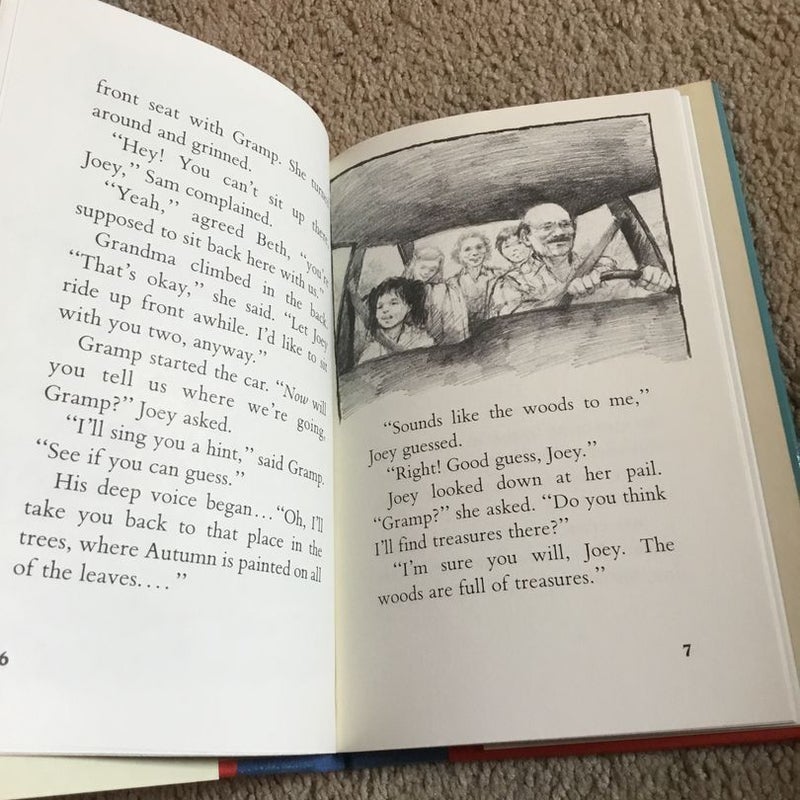 front seat with Gramp. She turned
around and grinned.
“Hey! You can’t sit up there
Joey,” Sam complained.
“Yeah,” agreed Beth, “you’re
supposed to sit back here with us.”
Grandma climbed in the back.
“That’s okay,” she said. “Let Joey
ride up front awhile. I’d like to sit
with you two, anyway.”
Gramp started the car. “Now will
you tell us where we’re going,
Gramp?” Joey asked.
“I’ll sing you a hint,” said Gramp.
“See if you can guess.”
His deep voice began... “Oh, I’ll
take you back to that place in the
trees, where Autumn is painted on all
of the leaves.... ”
6
“Sounds like the woods to me,”
Joey guessed.
“Right! Good guess, Joey.”
Joey looked down at her pail.
“Gramp?” she asked. “Do you think
I’ll find treasures there?”
“I’m sure you will, Joey. The
woods are full of treasures.”
7